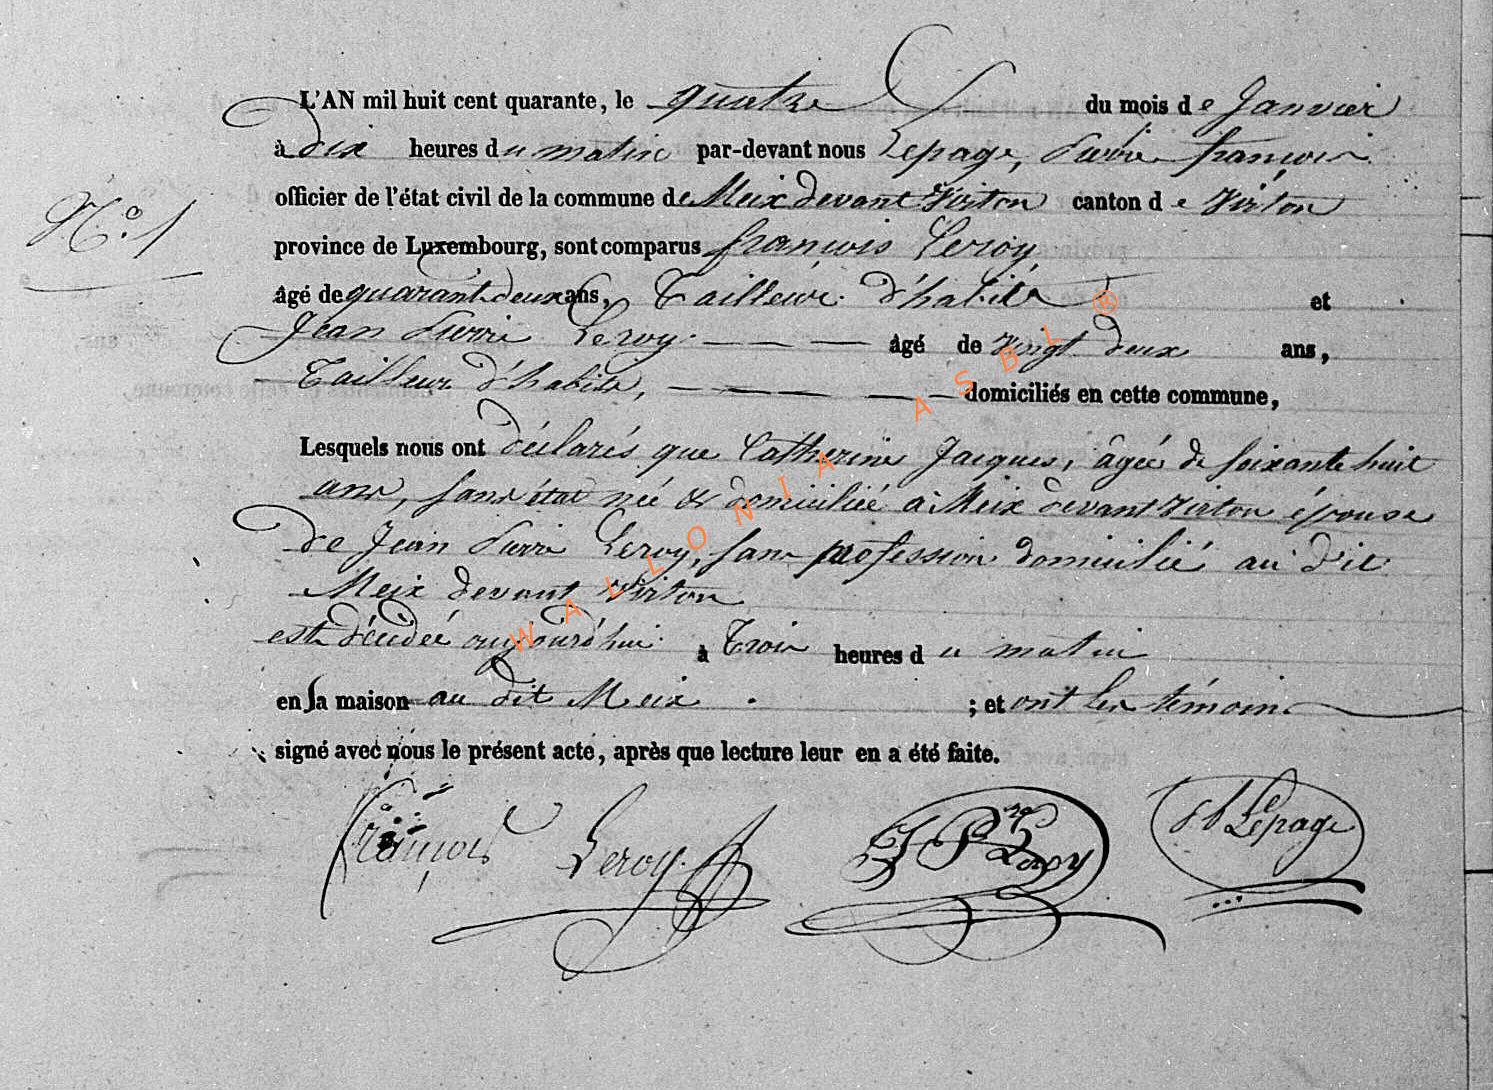 L'AN mil huit cent quarante, le quatre du mois de Janvier
à dix heures du matin par-devant nous Lepage, Pierre françois
officier de l'état civil de la commune de Meix devant Virton canton de Virton
N.° 1
province de Luxembourg, sont comparus françois Leroy
âgé de quarante deux ans, Tailleur d'habits et
Jean Pierre Leroy âgé de vingt deux ans,
Tailleur d'habits, domiciliés en cette commune,
Lesquels nous ont déclarés que Catherine Jacques, âgée de soixante huit
ans, sans état née & domiciliée à Meix devant Virton épouse
de Jean Pierre Leroy, sans profession domicilié au dit
Meix devant Virton
est décédée aujourd'hui à Trois heures du matin
en sa maison au dit Meix ; et ont les témoins
signé avec nous le présent acte, après que lecture leur en a été faite.
françois Leroy J P re Leroy Lepage
WALLONIA ASBL ®